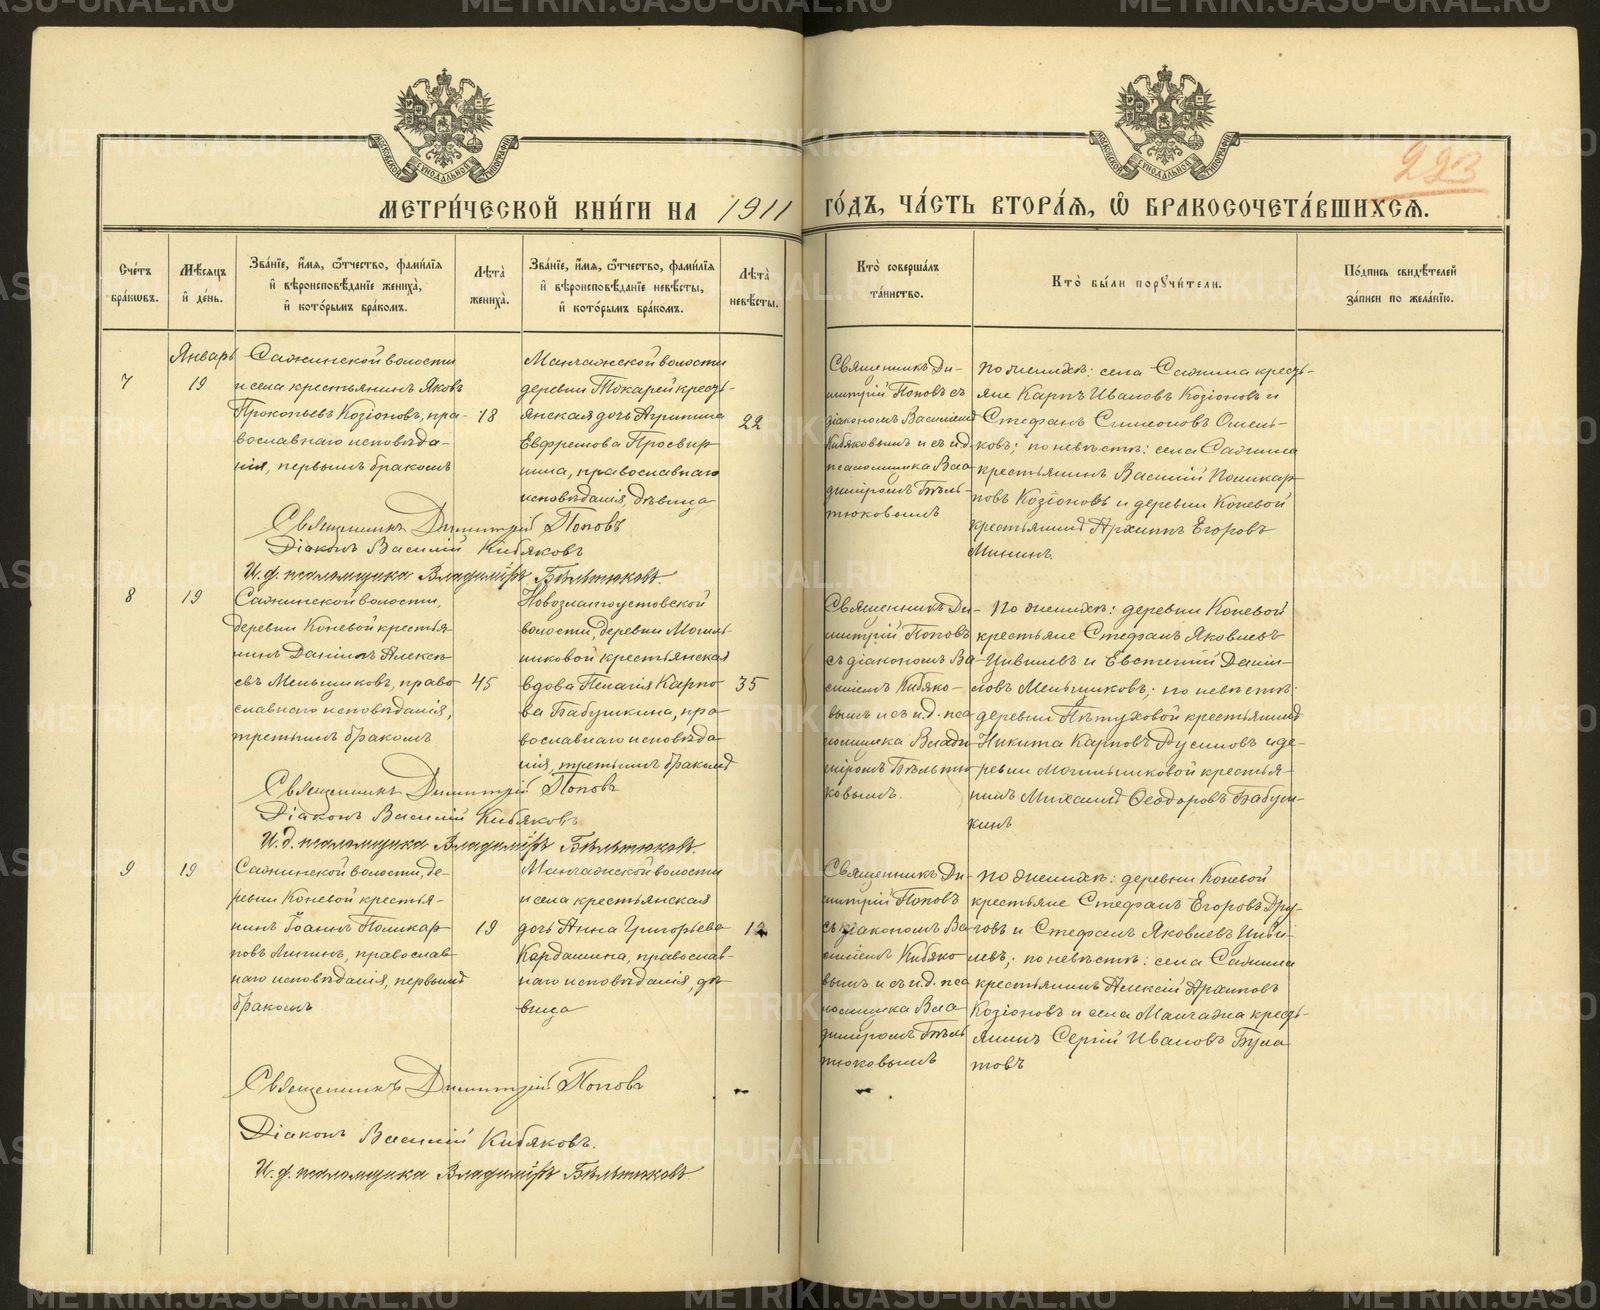 223
МЕТРИ́ЧЕСКОЙ КНИ́ГИ НА 1911 ГО́ДЪ, ЧА́СТЬ ВТОРА́Я, Ѡ҆ БРАКОСОЧЕТА́ВШИХСѦ.
Сче́тъ бра́кѡвъ.
Мѣ́сѧцъ и҆ де́нь.
Зва́нїе, и҆́мѧ, ѻ҆́тчество, фами́лїѧ и҆ вѣроисповѣ́данїе жениха̀, и҆ кото́рымъ бра́комъ.
Лѣ́та жениха̀.
Зва́нїе, и҆́мѧ, ѻ҆́тчество, фами́лїѧ и҆ вѣроисповѣ́данїе невѣ́сты, и҆ кото́рымъ бра́комъ.
Лѣ́та невѣ́сты.
Кто̀ соверша́лъ та́инство.
Кто̀ бы́ли порꙋчи́тели.
По́дпись свидѣ́телей за́писи по жела́нїю.
7
Январь
19
Сажинской волости
и села крестьянинъ Яковъ
Прокопьевъ Козіоновъ, пра-
вославнаго исповѣда-
нія, первымъ бракомъ
18
Манчажской волости
деревни Токарей кресть-
янская дочь Агрипина
Евфремова Просвир
нина, православнаго
исповѣданія, дѣвица
22
Священникъ Ди-
митрій Поповъ съ
діакономъ Василіемъ
Кибяковымъ и съ и.д.
псаломщика Вла
диміромъ Бѣль-
тюковымъ
По женихѣ: села Сажина кресть-
яне Карпъ Ивановъ Козіоновъ и
Стефанъ Симеоновъ Омель-
ковъ; по невѣстѣ: села Сажина
крестьянинъ Василій Поликар
повъ Козіоновъ и деревни Коневой
крестьянинъ Архипъ Егоровъ
Мининъ.
Священникъ Димитрій Поповъ
Діаконъ Василій Кибяковъ
И. д. псаломщика Владиміръ Бѣльтюковъ.
8
19
Сажинской волости,
деревни Коневой крестья-
нинъ Даніилъ Алексѣ
евъ Меньшиковъ, право-
славнаго исповѣданія,
третьимъ бракомъ
45
Новозлатоустовской
волости, деревни Могиль-
никовой крестьянская
вдова Пелагія Карпо-
ва Бабушкина, пра-
вославнаго исповѣда
нія, третьимъ бракомъ
35
Священникъ Ди-
митрій Поповъ
съ діакономъ Ва
силіемъ Кибяко-
вымъ и съ и.д. пса
ломщика Влади-
міромъ Бѣльтю
ковымъ.
По женихѣ: деревни Коневой
крестьяне Стефанъ Яковлевъ
Цивилевъ и Евстегній Даніи-
ловъ Меньшиковъ; по невѣстѣ:
деревни Пѣтуховой крестьянинъ
Никита Карповъ Русиновъ и де-
ревни Могильниковой крестья-
нинъ Михаилъ Ѳеодоровъ Бабуш-
кинъ
Священникъ Димитрій Поповъ
Діаконъ Василій Кибяковъ
И. д. псаломщика Владиміръ Бѣльтюковъ.
9
19
Сажинской волости, де-
ревни Коневой крестья-
нинъ Іоаннъ Поликар
повъ Мининъ, православ-
наго исповѣданія, первымъ
бракомъ
19
Манчажской волости
и села крестьянская
дочь Анна Григорьева
Кардашина, православ-
наго исповѣданія, дѣ-
вица
Священникъ Ди-
митрій Поповъ
съ діакономъ Ва
силіемъ Кибяко
вымъ и съ и.д. пса
ломщика Вла-
диміромъ Бѣль
тюковымъ
По женихѣ: деревни Коневой
крестьяне Стефанъ Егоровъ Дру-
говъ и Стефанъ Яковлевъ Циви-
левъ; по невѣстѣ: села Сажина
крестьянинъ Алексій Архиповъ
Козіоновъ и села Манчажа кресть-
янинъ Сергій Ивановъ Була
товъ
Священникъ Димитрій Поповъ
Діаконъ Василій Кибяковъ.
И. д. псаломщика Владиміръ Бѣльтюковъ
METRIKI.GASO-URAL.RU